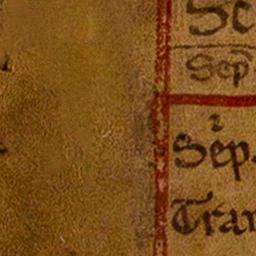 Sc
Sep
i
Sep.
Tran